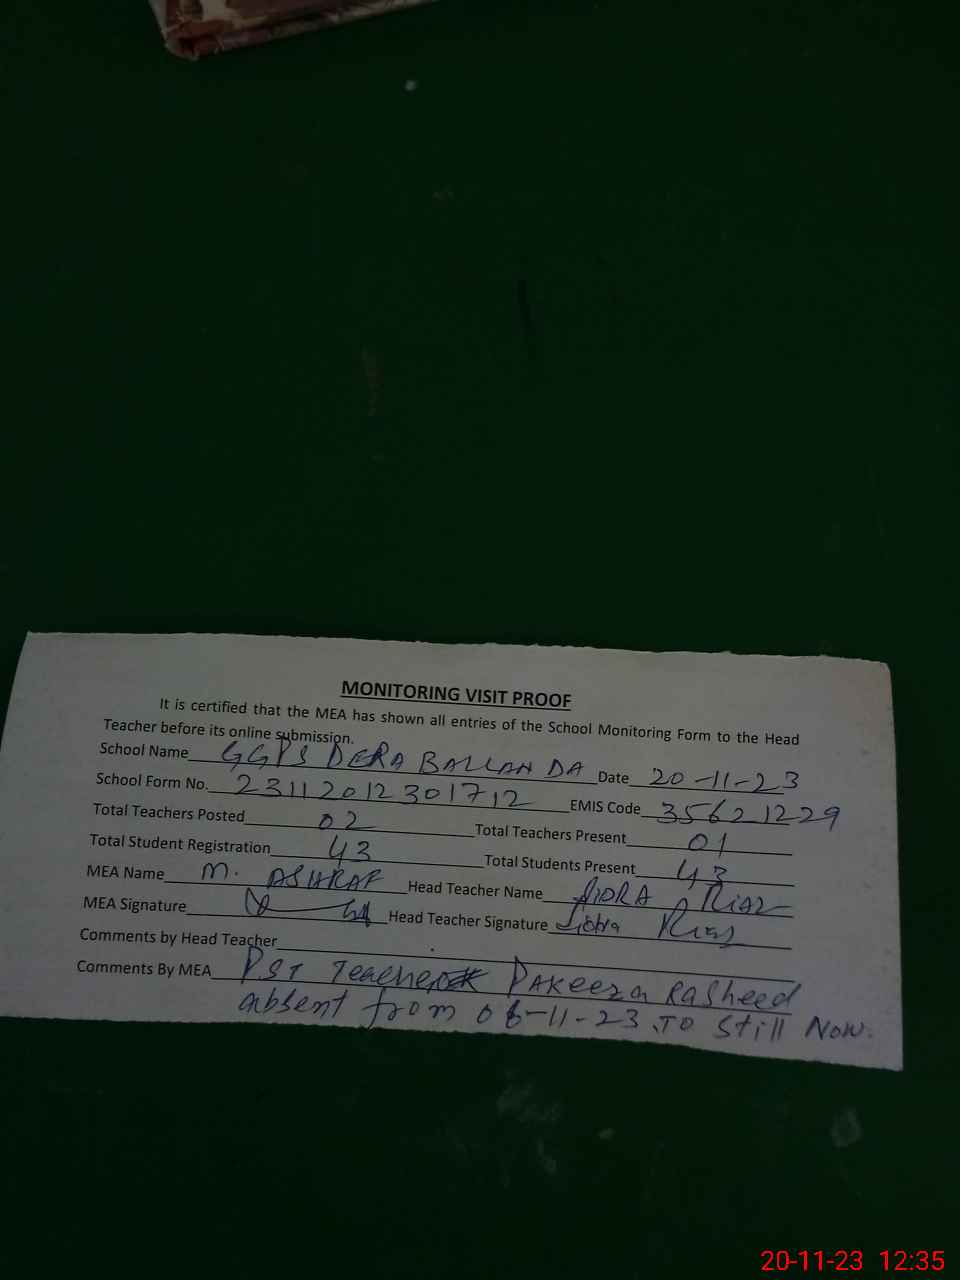 MONITORING VISIT PROOF
It is certified that the MEA has shown all entries of the School Monitoring Form to the Head
Teacher before its online submission.
School Name GGPS DERA BALLAN DA Date 20-11-23
School Form No. 23112012301712 EMIS Code 35621229
Total Teachers Posted 02 Total Teachers Present 01
Total Student Registration 43 Total Students Present 43
MEA Name M. ASHRAF Head Teacher Name SIDRA RIAZ
MEA Signature Head Teacher Signature Sidra Riaz
Comments by Head Teacher
Comments By MEA PST Teacher PAKeeza Rasheed
absent from 06-11-23 TO Still Now.
20-11-23 12:35